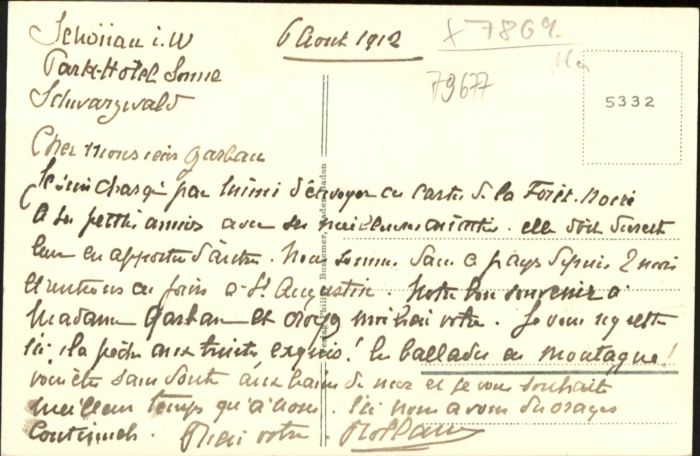 Schönau i. W
Park-Hotel Sonne
Schwarzwald
6 Aout 1912
X 7869
79677
5332
Cher Monsieur Garban
Je suis chargé par d'envoyer ces cartes de la Forêt-Noire
à ses petites amies avec ses meilleures amitiés. elle doit
leur en apporter d'autres. Nous sommes dans ce pays depuis 2 mois
et rentrons ces jours à St Augustin. Notre bon souvenir à
Madame Garban et croyez moi bien votre. Je vous regrette
ici: la pêche aux truites exquise! les ballades en montagne!
vous êtes sans doute aux bains de mer et je vous souhaite
meilleur temps qu'à nous. Ici nous avons des orages
continuels. Bien votre.